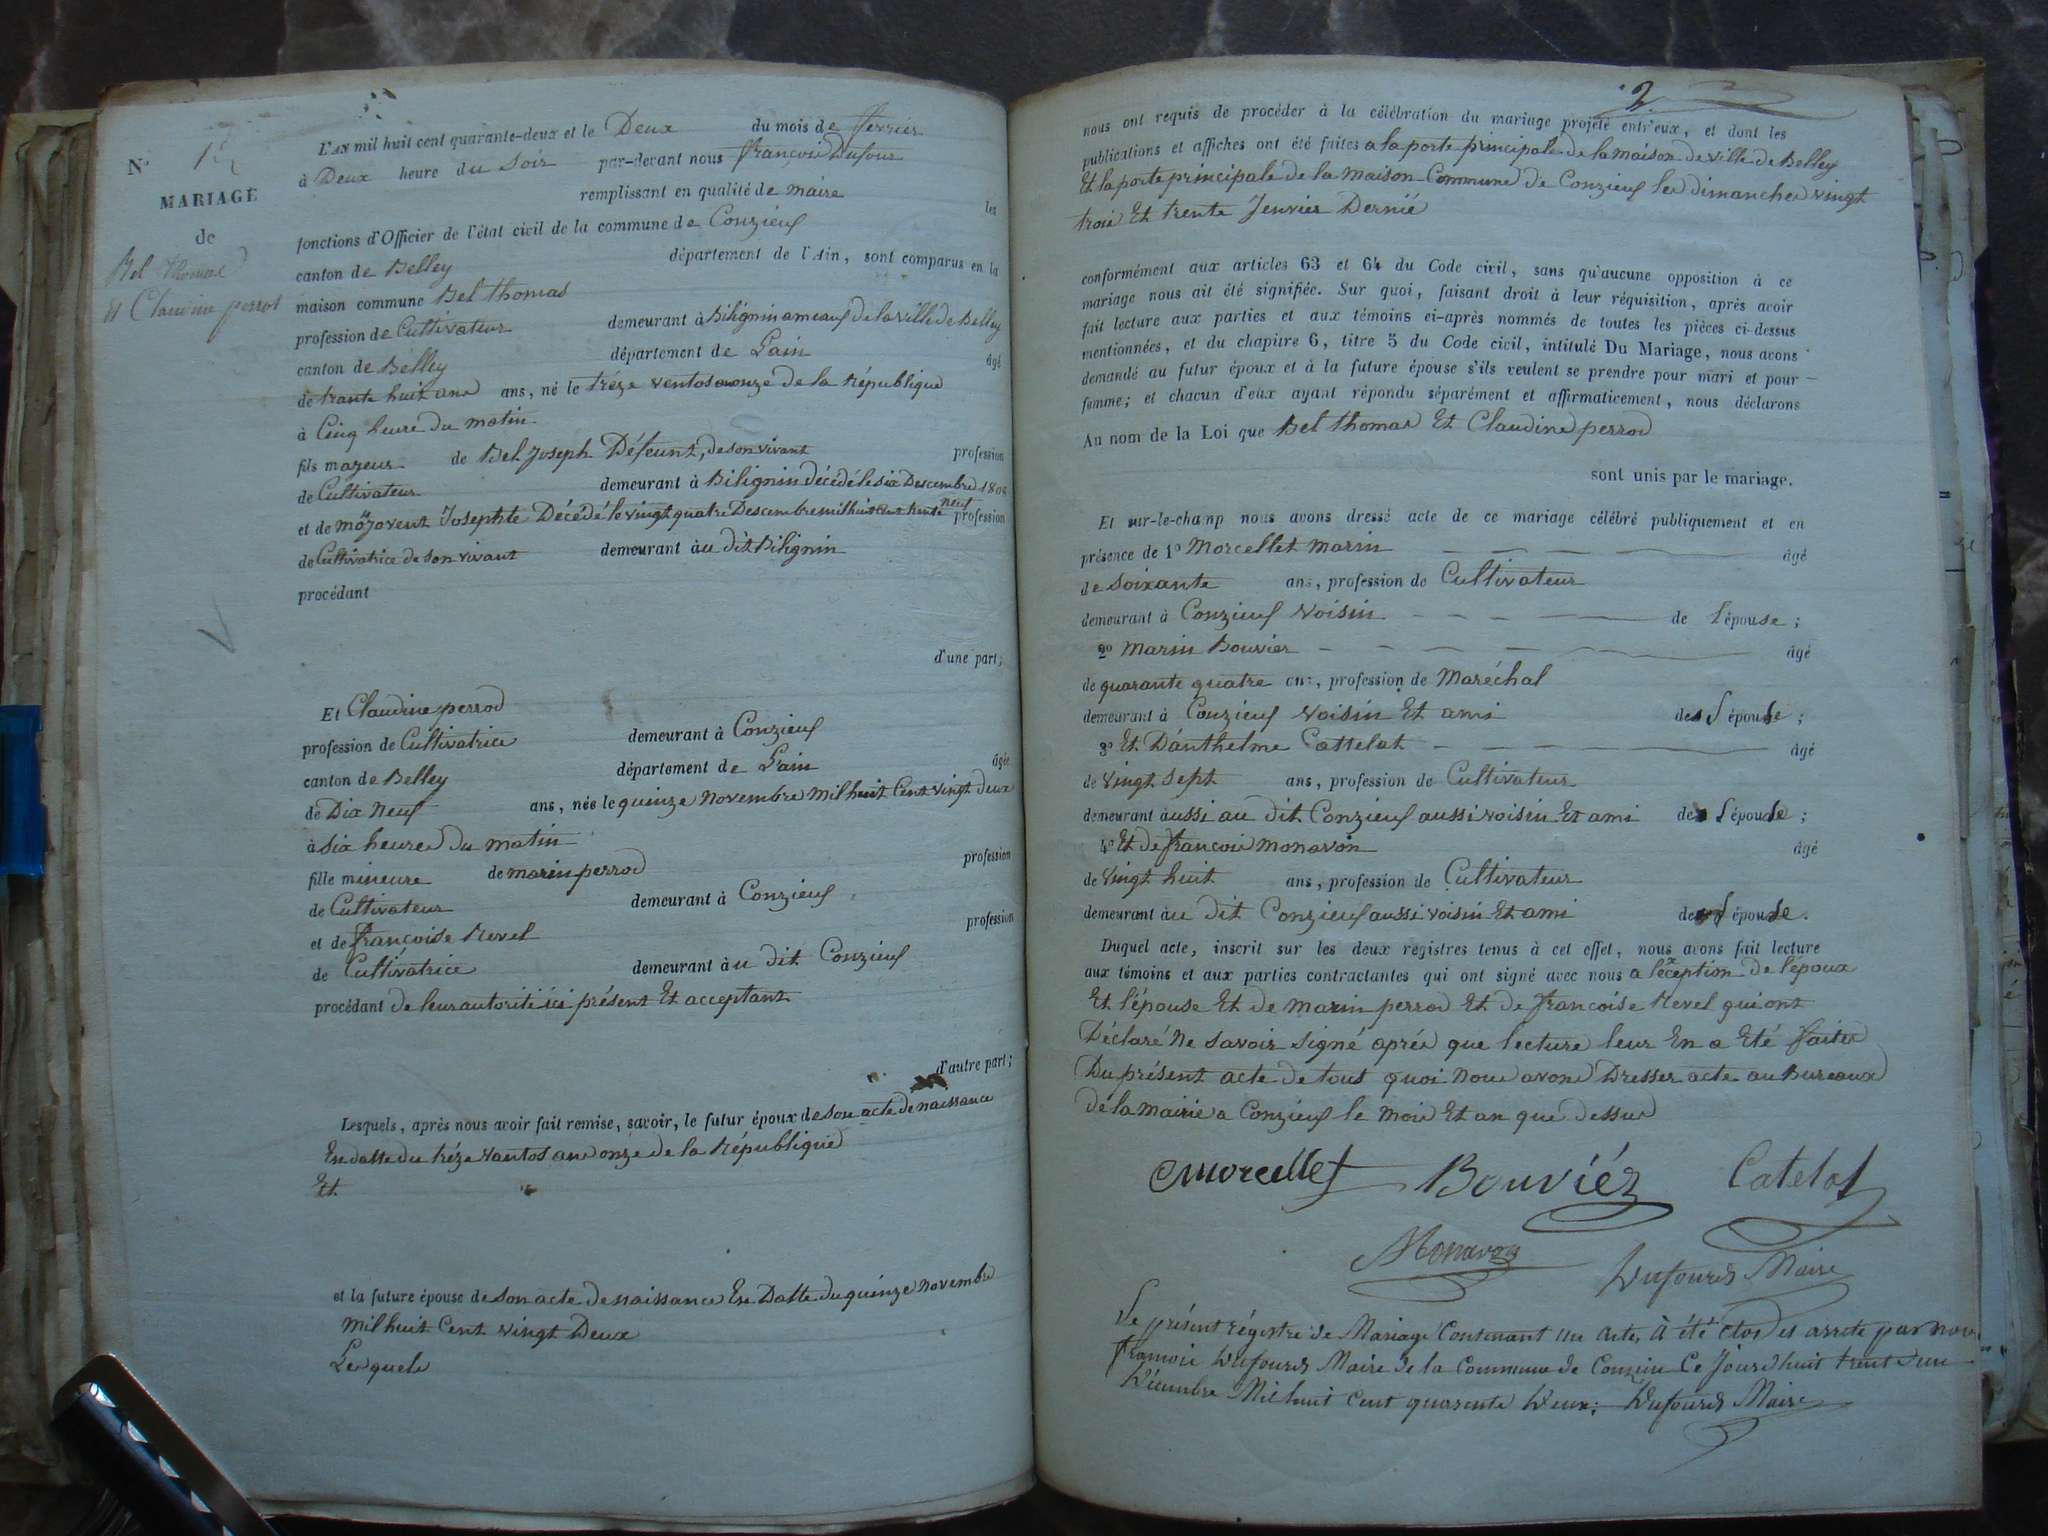 N° 1
MARIAGE
de
Bel Thomas
et Claudine perrod
L'AN mil huit cent quarante-deux et le Deux du mois de fevrier
à Deux heure du Soir par-devant nous françois Dufour
remplissant en qualité de maire les
fonctions d'Officier de l'état civil de la commune de Conzieux
canton de Belley département de l'Ain, sont comparus en la
maison commune Bel thomas
profession de Cultivateur demeurant à Bilignin ameaux de la ville de Belley
canton de Belley département de L'ain âgé
de trante huit ans ans, né le tréze ventos onze de la république
à Cinq heure du matin
fils majeur de Bel Joseph Défeunt, de son vivant profession
de Cultivateur demeurant à Bilignin décédé le six Descembre 180
et de Jovent Josephte Décédé le vingt quatre Descembre mil huit cent trente neuf profession
de Cultivatrice de son vivant demeurant àu dit Bilignin
procédant
d'une part;
Et Claudine perrod
profession de Cultivatrice demeurant à Conzieux
canton de Belley département de L'ain âgée
de Dix Neuf ans, née le quinze Novembre Mil huit Cent vingt deux
à Six heures Du matin
fille mineure de marin perrod profession
de Cultivateur demeurant à Conzieux
et de françoise Revel profession
de Cultivatrice demeurant àu dit Conzieux
procédant de leur autorité ici présent Et acceptant
d'autre part;
Lesquels, après nous avoir fait remise, savoir, le futur époux de son acte de naissance
En datte du tréze vantos and onze de la République
Et
et la future épouse de son acte de naissance En Datte du quinze Novembre
Mil huit Cent vingt Deux
Lesquels
2
nous ont requis de procéder à la célébration du mariage projeté entr'eux, et dont les
publications et affiches ont été faites a la porte principale de la maison de ville de Belley
Et la porte principale de la maison Commune de Conzieux les dimanches vingt
trois Et trente Jenvier Dernié
conformément aux articles 63 et 64 du Code civil, sans qu'aucune opposition à ce
mariage nous ait été signifiée. Sur quoi, faisant droit à leur réquisition, après avoir
fait lecture aux parties et aux témoins ci-après nommés de toutes les pièces ci-dessus
mentionnées, et du chapitre 6, titre 5 du Code civil, intitulé Du Mariage, nous avons
demandé au futur époux et à la future épouse s'ils veulent se prendre pour mari et pour
femme; et chacun d'eux ayant répondu séparément et affirmativement, nous déclarons
Au nom de la Loi que Bel thomas Et Claudine perrod
sont unis par le mariage.
Et sur-le-champ nous avons dressé acte de ce mariage célébré publiquement et en
présence de 1° Morcellet marin âgé
de soixante ans, profession de Cultivateur
demeurant à Conzieux voisin de l'épouse;
2° Marin Bouvier âgé
de quarante quatre ans, profession de Maréchal
demeurant à Conzieux voisin Et ami de l'épouse;
3° Et D'anthelme Cattelat âgé
de vingt sept ans, profession de Cultivateur
demeurant àussi au dit Conzieux aussi voisin Et ami de l'épouse;
4° Et de françois monavon âgé
de vingt huit ans, profession de Cultivateur
demeurant àu dit Conzieux aussi voisin Et ami de l'épouse.
Duquel acte, inscrit sur les deux registres tenus à cet effet, nous avons fait lecture
aux témoins et aux parties contractantes qui ont signé avec nous a l'éxception de l'époux
Et l'épouse Et de marin perrod Et de françoise Revel qui ont
Déclaré Ne savoir signé aprés que lecture leur En a Eté faites
Du présent acte de tout quoi Nous avons Dresser acte au Bureaux
de la mairie a Conzieux le mois Et an que dessus
Morcellet Bouviér Catelat
Monavon Dufour Maire
Le présent régistre de Mariage Contenant un Acte, à été clos et arreté par nous
françois Dufour Maire de la Commune de Conzieu Ce Jourd'huit trent un
Décembre Mil huit Cent quarente Deux; Dufour Maire